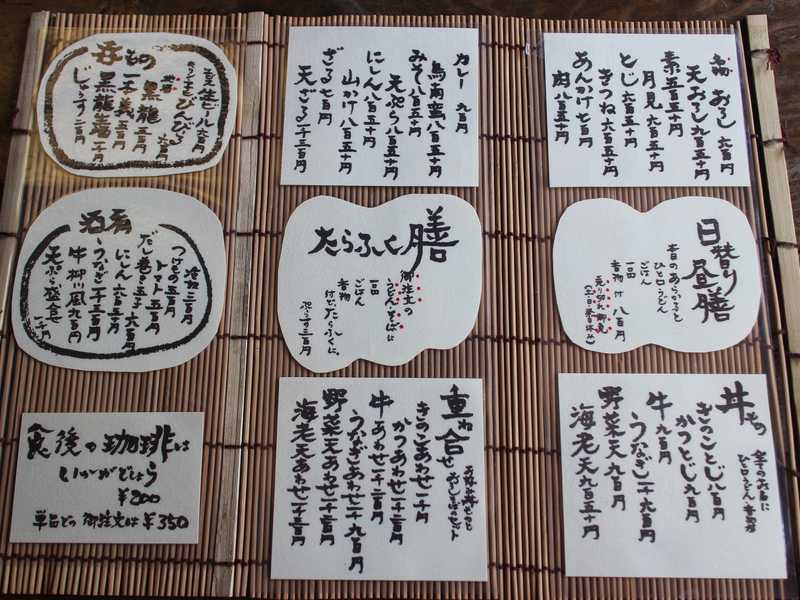 名物 おろし 六百円
天おろし 九百五十円
素 五百五十円
月見 六百五十円
とじ 六百五十円
きつね 六百五十円
あんかけ 七百円
肉 八百五十円
カレー 九百円
鳥南蛮 八百五十円
みそ 八百五十円
天ぷら 八百五十円
にしん 八百五十円
山かけ 八百五十円
ざる 七百円
天ざる 一千三百円
呑もの
生ビール 六百円
キリン
びんびーる 六百円
地酒
黒龍 五百円
一本義 五百円
黒龍 吟醸 一千円
じゅーす 二百円
日替り昼膳
本日のあらかると
ひと口うどん
ごはん
一品
香物 付 八百円
売り切れ御免
(土・日・祭日休み)
たらふく膳
御注文の
うどん・そばに
一品
ごはん
香物
付いてたらふくに。
ぷらす三百円
酒肴
冷奴 三百円
つけもの 五百円
トマト 五百円
だし巻き玉子 六百円
にしん 六百五十円
うなぎ 一千三百円
牛柳川風 九百円
天ぷら盛合 一千円
丼もの
全ての丼に
ひと口うどん・香物付
きのことじ 八百円
かつとじ 九百円
牛 九百円
うなぎ 一千六百円
野菜天 九百円
海老天 九百五十円
重ね合せ
お好み丼ものと
おろしそばのセット
きのこあわせ 一千円
かつあわせ 一千二百円
牛あわせ 一千二百円
うなぎあわせ 一千九百円
野菜天あわせ 一千二百円
海老天あわせ 一千三百円
食後の珈琲は
いかがでしょう
¥200
単品での御注文は ¥350